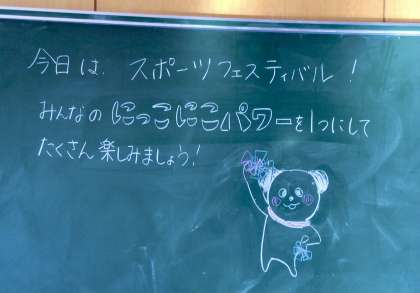 今日は、スポーツフェスティバル!
みんなのにっこにこパワーを1つにして
たくさん楽しみましょう!